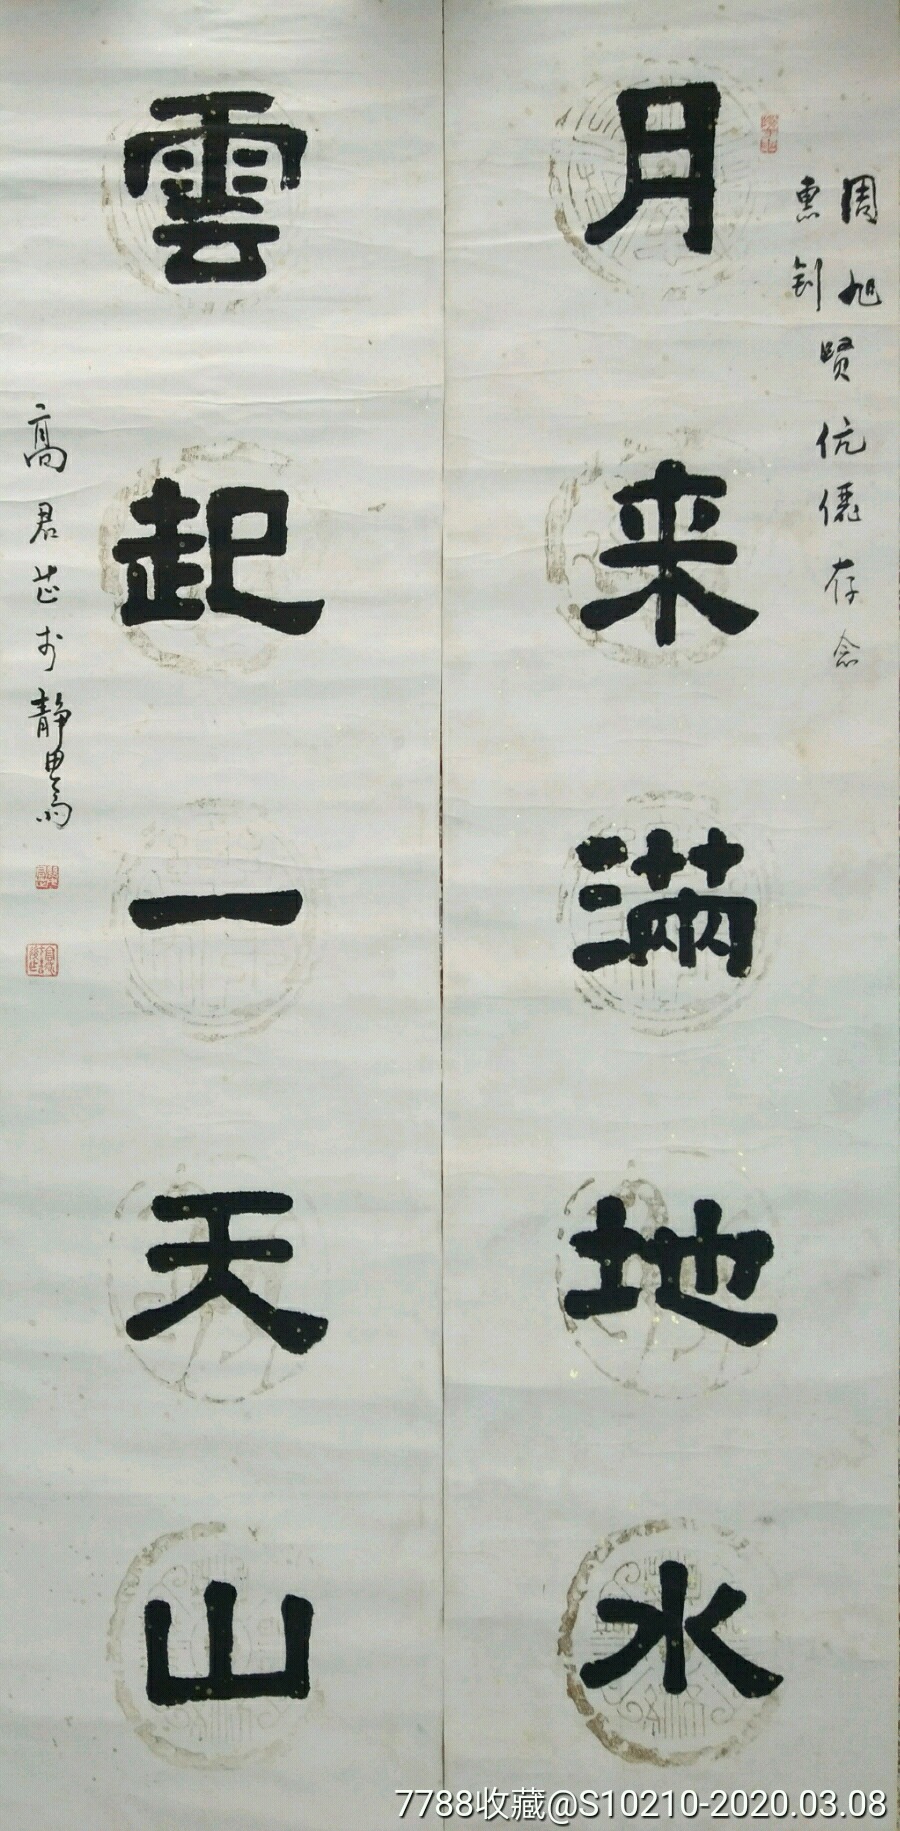 月来满地水
雲起一天山
周旭賢伉儷存念
惠钊
高君芷于静思斋
7788收藏@S10210-2020.03.08